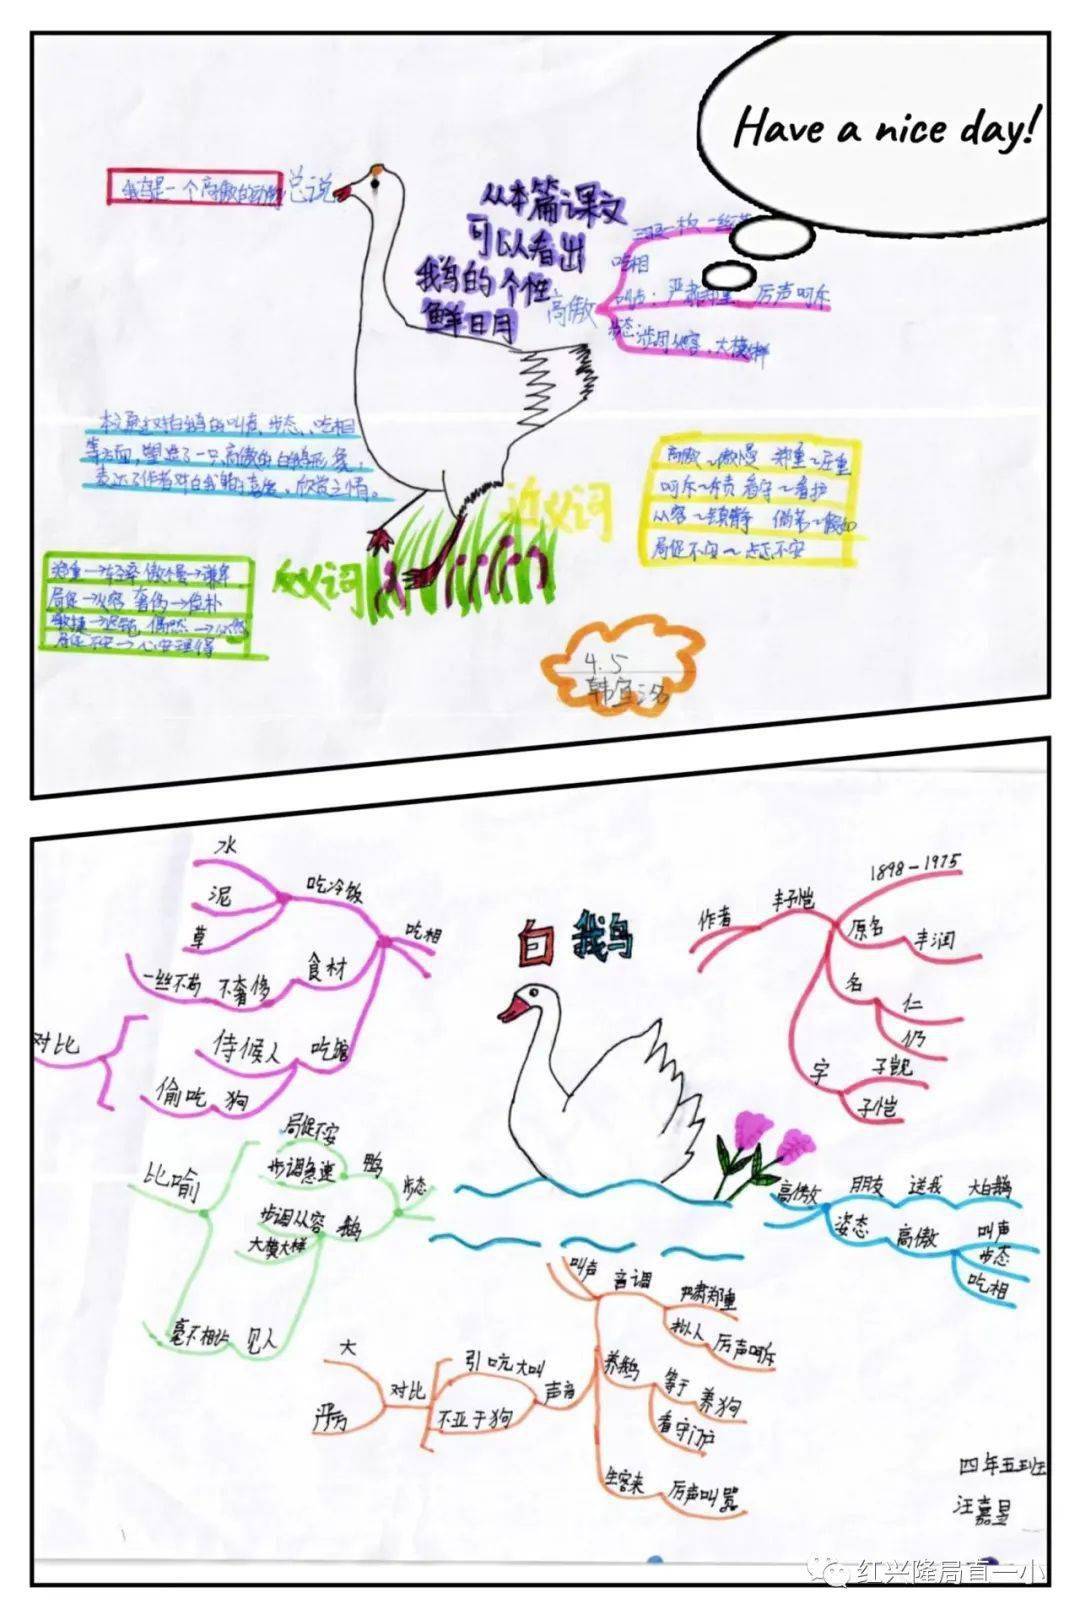 Have a nice day!
鹅是一个高傲的动物
总说
从本篇课文
可以看出
鹅的个性
鲜明
高傲
吃相
叫声：严肃郑重 厉声呵斥
步态 步调从容、大模大样
本文通过对白鹅的叫声、步态、吃相
等方面，塑造了一只高傲的白鹅形象，
表达了作者对白鹅的喜爱、欣赏之情。
近义词
高傲~傲慢 郑重~庄重
呵斥~斥责 看守~看护
从容~镇静 倘若~假如
局促不安~忐忑不安
反义词
郑重→轻率 傲慢→谦卑
局促→从容 奢侈→俭朴
敏捷→迟钝 偶然→必然
局促不安→心安理得
4.5
白鹅
吃相
吃冷饭
水
泥
草
食材
不奢侈
一丝不苟
吃饭
侍候人
狗
偷吃
对比
作者
丰子恺
1898-1975
原名
丰润
名
仁
仍
字
子觊
子恺
步态
鸭
局促不安
步调急速
鹅
步调从容
大模大样
见人
毫不相让
比喻
高傲
朋友
送我
大白鹅
姿态
高傲
叫声
步态
吃相
叫声
音调
严肃郑重
厉声呵斥
养鹅
等于
养狗
看守门户
生客来
厉声叫嚣
声音
引吭大叫
不亚于狗
对比
大
严厉
四年五班
汪嘉昱
红兴隆局直一小